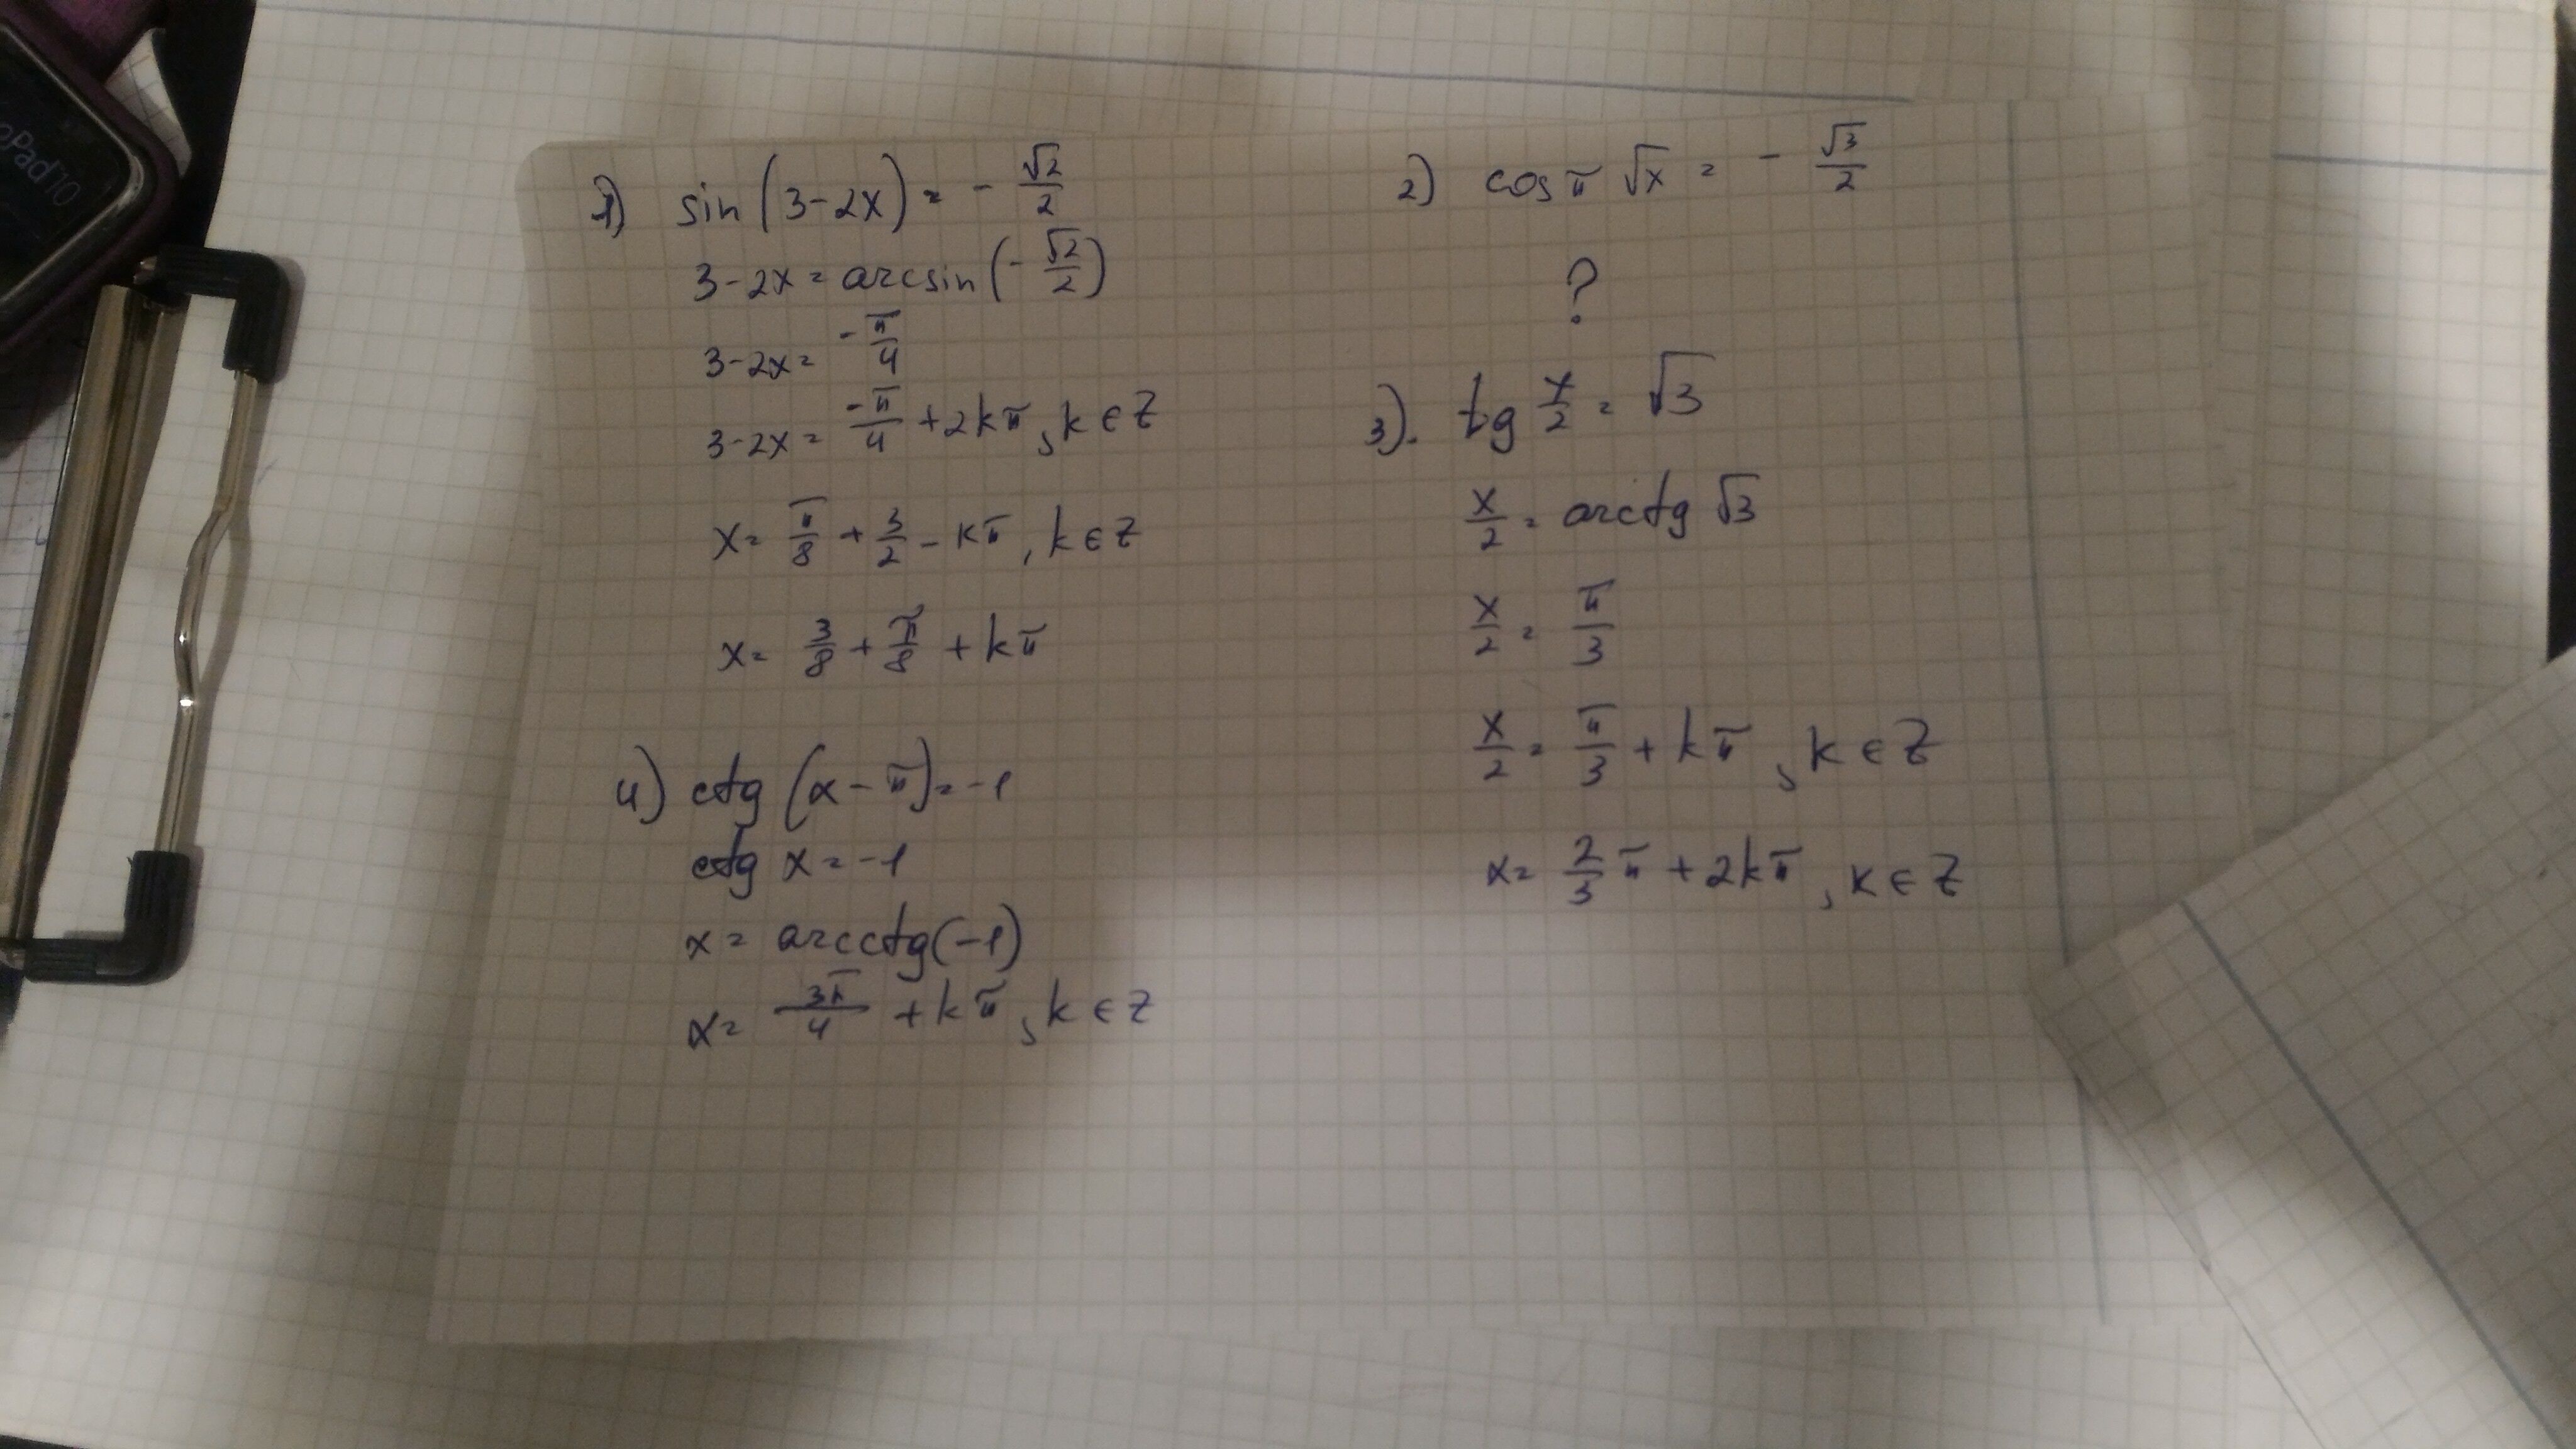 1) sin(3-2x) = - √2/2
3-2x = arcsin(- √2/2)
3-2x = -π/4
3-2x = -π/4 + 2kπ, k ∈ Z
x = π/8 + 3/2 - kπ, k ∈ Z
x = 3/8 + π/8 + kπ
4) ctg(x-π) = -1
ctg x = -1
x = arcctg(-1)
x = 3π/4 + kπ, k ∈ Z
2) cos π √x = - √3/2
?
3). tg x/2 = √3
x/2 = arctg √3
x/2 = π/3
x/2 = π/3 + kπ, k ∈ Z
x = 2/3 π + 2kπ, k ∈ Z